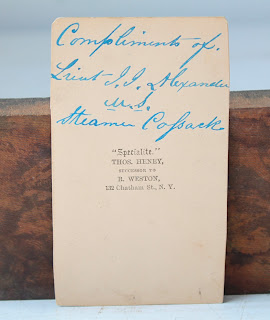 Compliments of.
Lieut J. J. Alexander
U.S.
Steamer Coſsack.
"Specialite."
THOS. HENRY,
SUCCESSOR TO
R. WESTON,
132 Chatham St., N. Y.